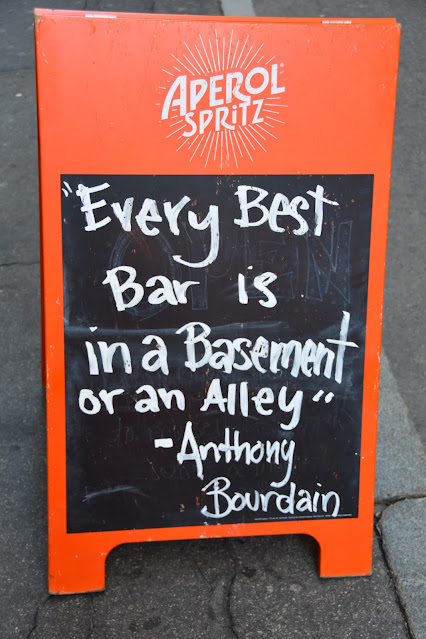 APEROL
SPRITZ
"Every Best
Bar is
in a Basement
or an Alley"
-Anthony
Bourdain